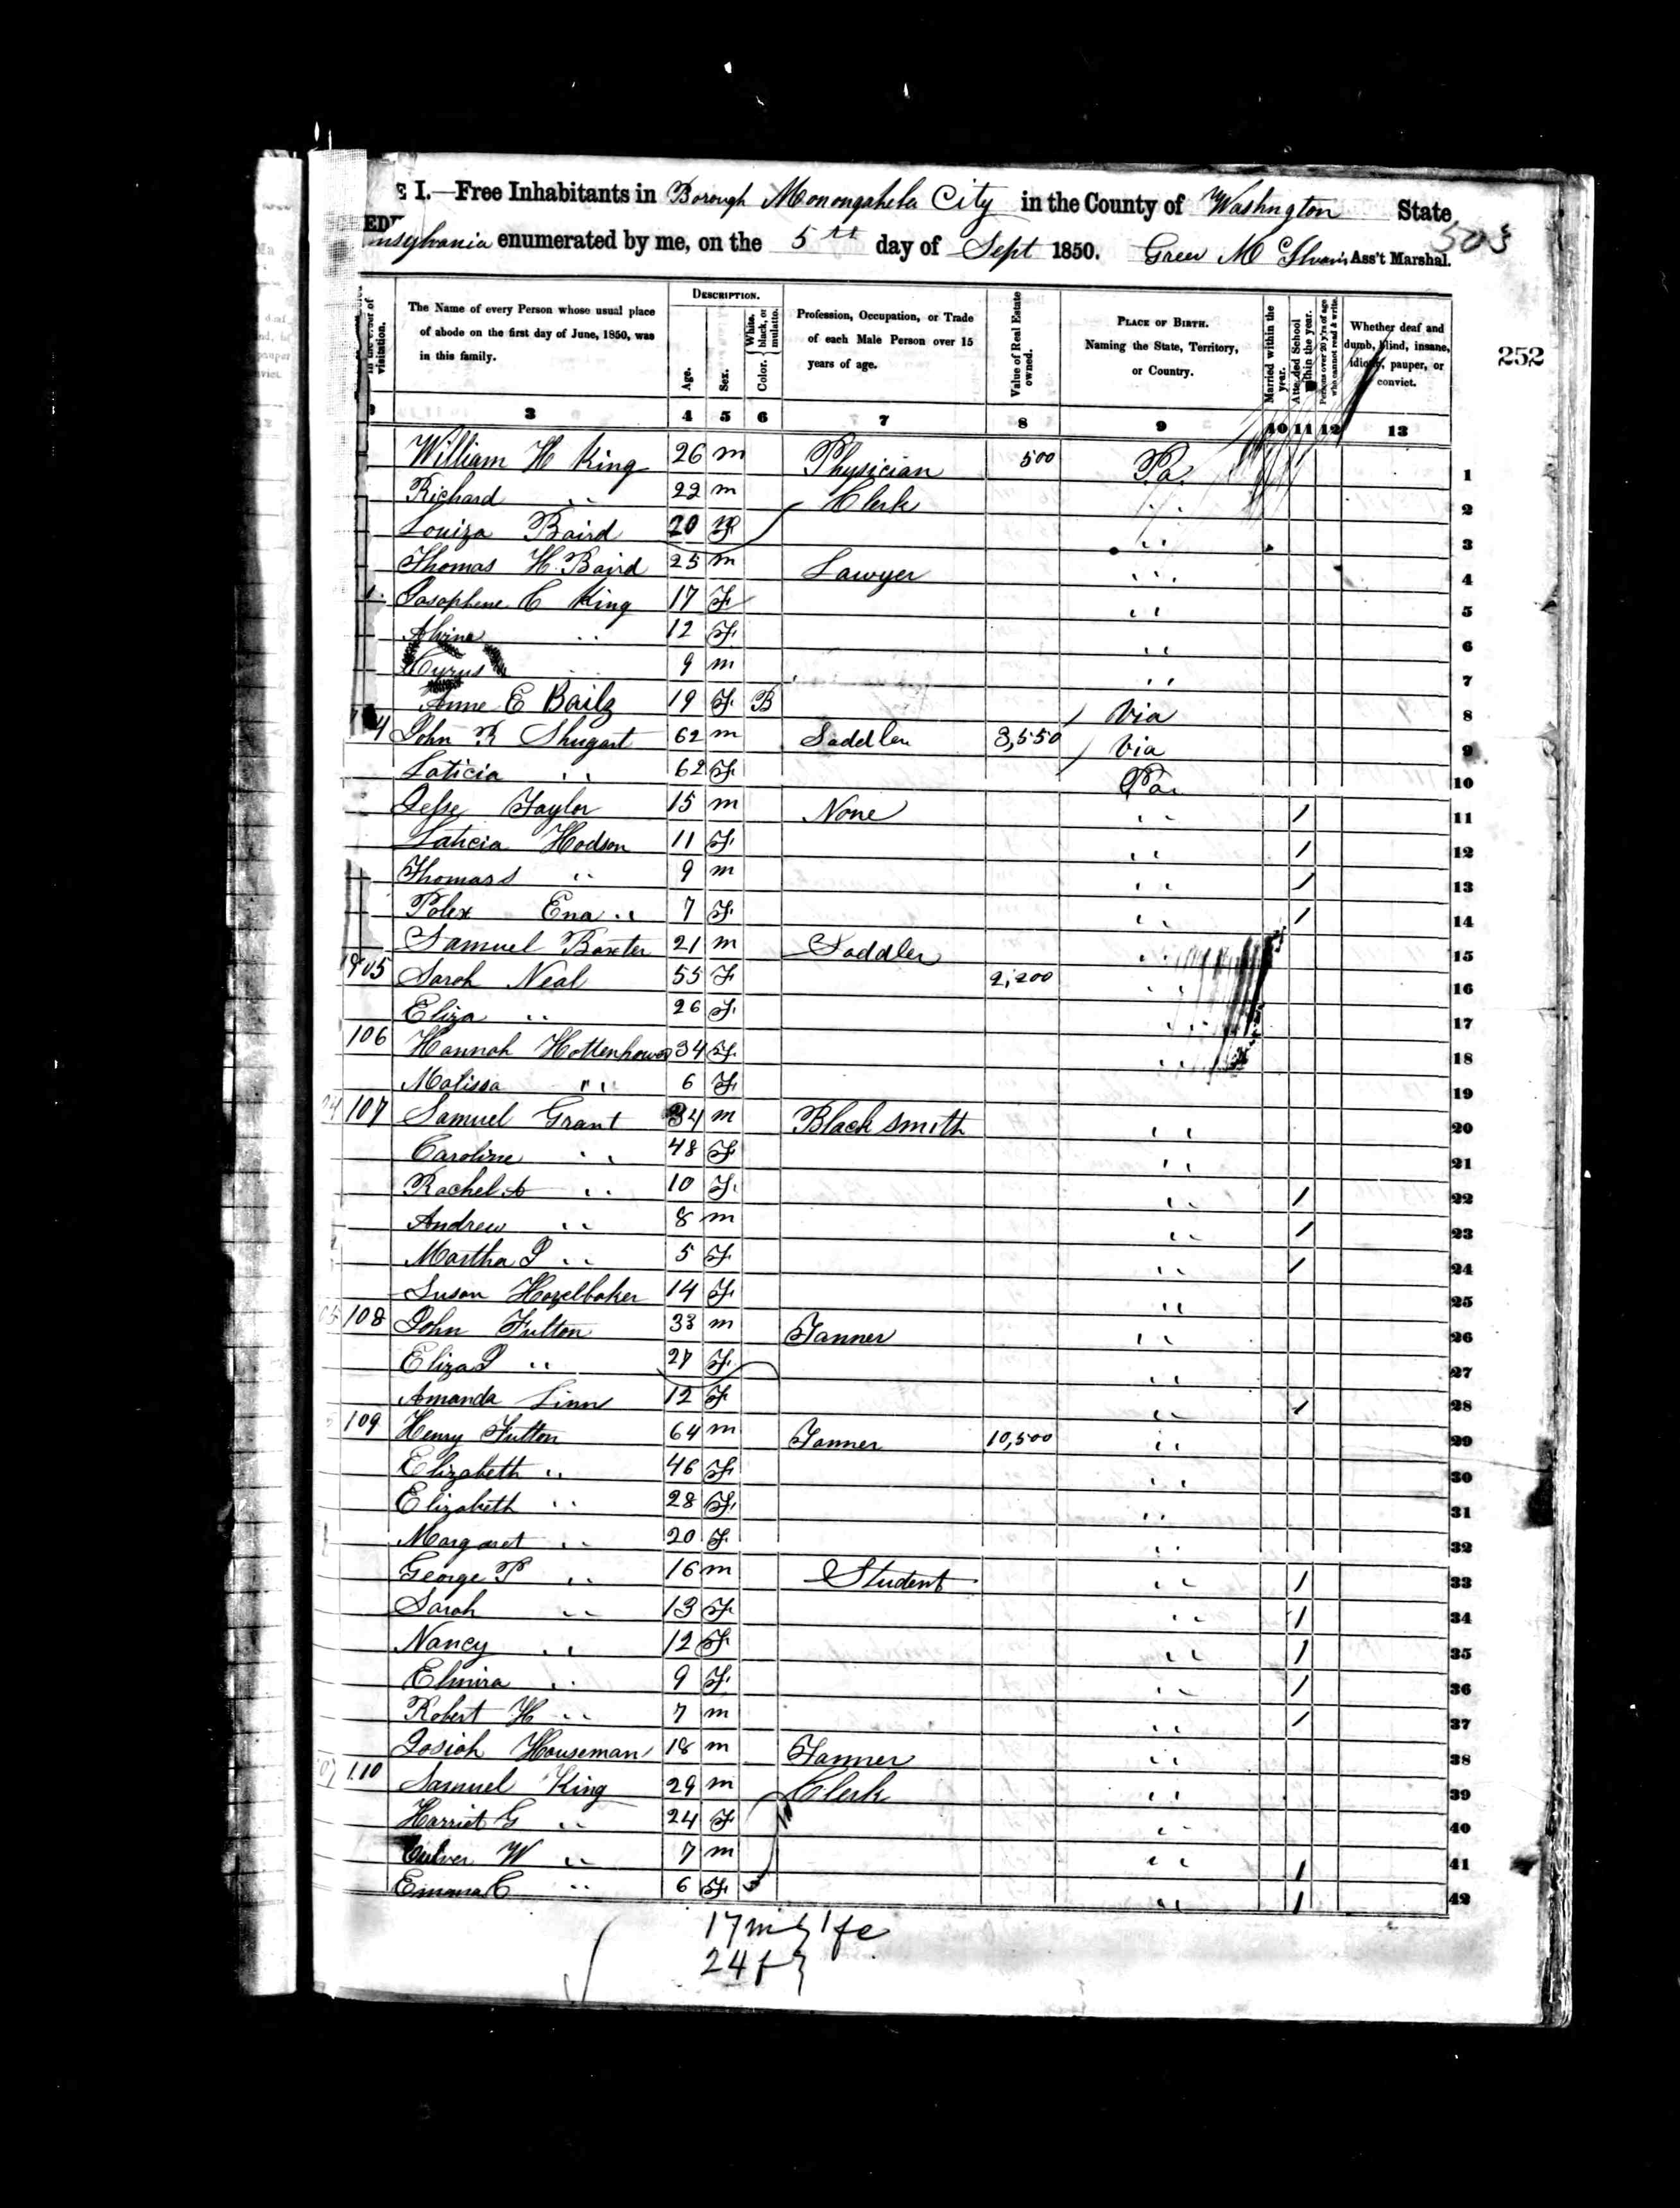 E I.—Free Inhabitants in Borough Monongahela City in the County of Washngton State
nsylvania enumerated by me, on the 5th day of Sept 1850. Green Ass't Marshal.
503
252
visitation.
The Name of every Person whose usual place of abode on the first day of June, 1850, was in this family.
DESCRIPTION.
Age.
Sex.
Color. { White, black, or mulatto.
Profession, Occupation, or Trade of each Male Person over 15 years of age.
Value of Real Estate owned.
PLACE OF BIRTH. Naming the State, Territory, or Country.
Married within the year.
Attended School within the year.
Persons over 20 y'rs of age who cannot read & write.
Whether deaf and dumb, blind, insane, idiotic, pauper, or convict.
3 4 5 6 7 8 9 10 11 12 13
William H King 26 m Physician 500 Pa. 1
Richard " 22 m Clerk " 2
Louiza Baird 20 F " 3
Thomas H. Baird 25 m Lawyer " 4
Josophene C King 17 F " 5
Alvina " 12 F " 6
Cyrus " 9 m " 7
Anne E 19 F B Via 8
4 John R Shugart 62 m Saddler 3,550 Via 9
Laticia " 62 F Pa. 10
Jesse Taylor 15 m None " / 11
Laticia Hodson 11 F " / 12
Thomas S " 9 m " / 13
Ena " 7 F " / 14
Samuel Baxter 21 m Saddler " 15
105 Sarah Neal 55 F 2,200 " 16
Eliza " 26 F " 17
106 Hannah Hottenhower 34 F " 18
Malissa " 6 F 19
107 Samuel Grant 34 m Black smith " 20
Caroline " 48 F " 21
Rachel A " 10 F " / 22
Andrew " 8 m " / 23
Martha J " 5 F " / 24
Susan Hazelbaker 14 F " 25
108 John Fulton 33 m Tanner " 26
Eliza J " 27 F " 27
Amanda Linn 12 F " / 28
109 Henry Fulton 64 m Tanner 10,500 " 29
Elizabeth " 46 F " 30
Elizabeth " 28 F " 31
Margaret " 20 F " 32
George P " 16 m Student " / 33
Sarah " 13 F " / 34
Nancy " 12 F " / 35
Elmira " 9 F " / 36
Robert H " 7 m " / 37
Josiah Houseman 18 m Tanner " 38
110 Samuel King 29 m Clerk " 39
Harriet G " 24 F " 40
Culver W " 7 m " / 41
Emma C " 6 F " / 42
17 m } 1 fc
24 f }